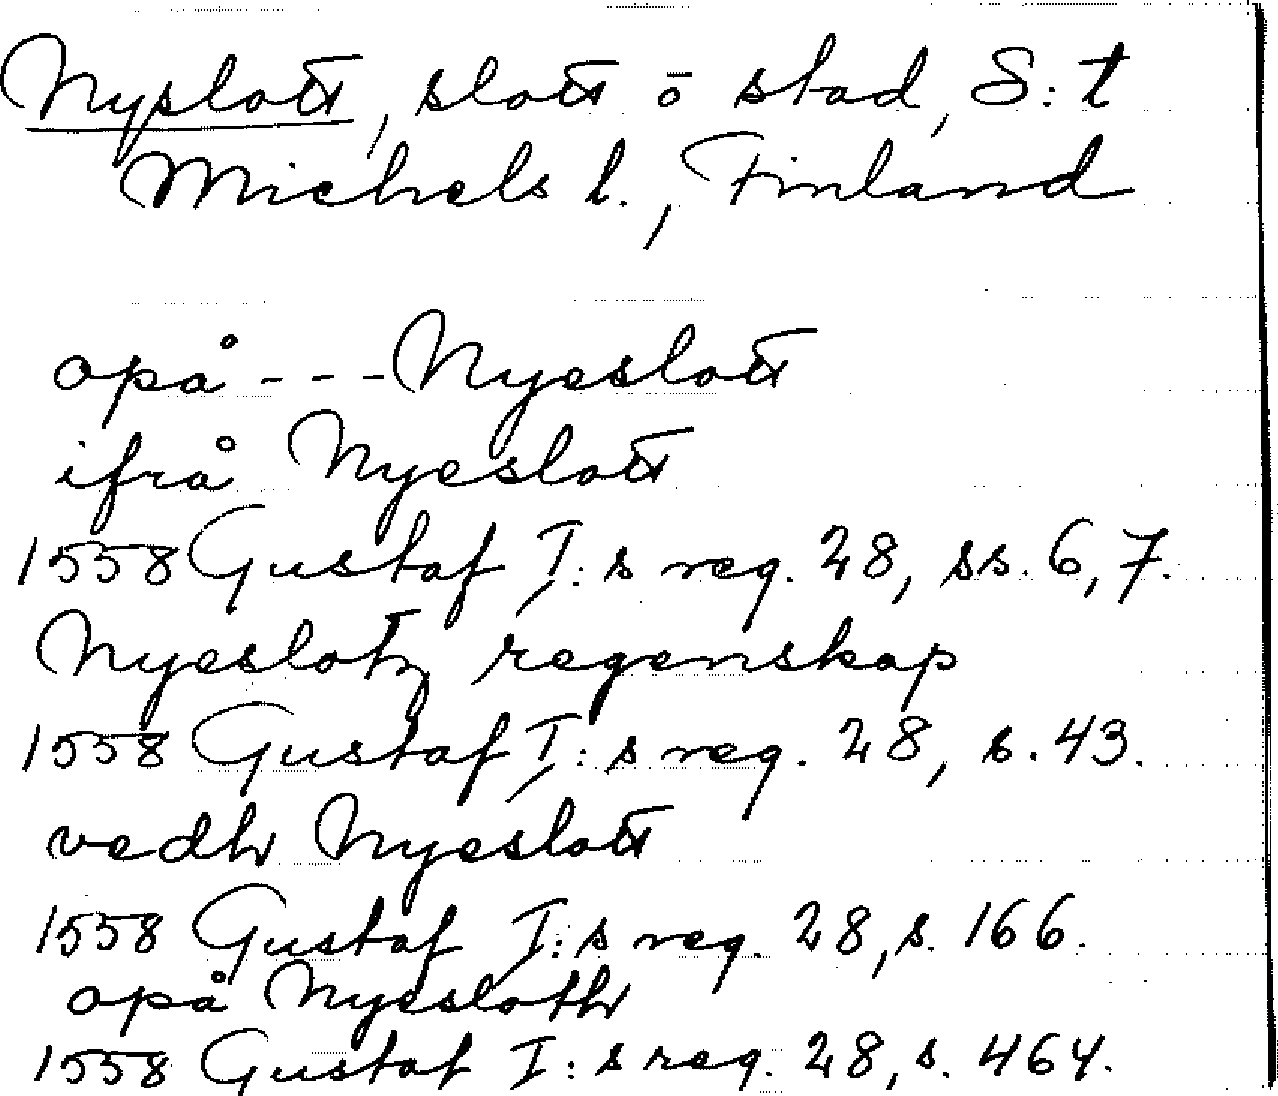 Nyslott, slott o stad, S:t
Michels l., Finland
opå - - - Nyeslott
ifrå Nyeslott
1558 Gustaf I:s reg. 28, ss. 6, 7.
Nyeslotz regenskap
1558 Gustaf I:s reg. 28, s. 43.
vedh Nyeslott
1558 Gustaf I:s reg. 28, s. 166.
opå Nyesloth
1558 Gustaf I:s reg. 28, s. 464.